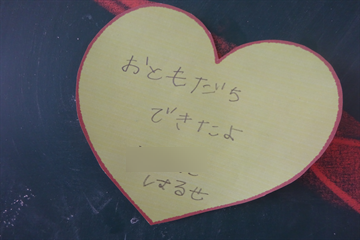 おともだち
できたよ
はるせ